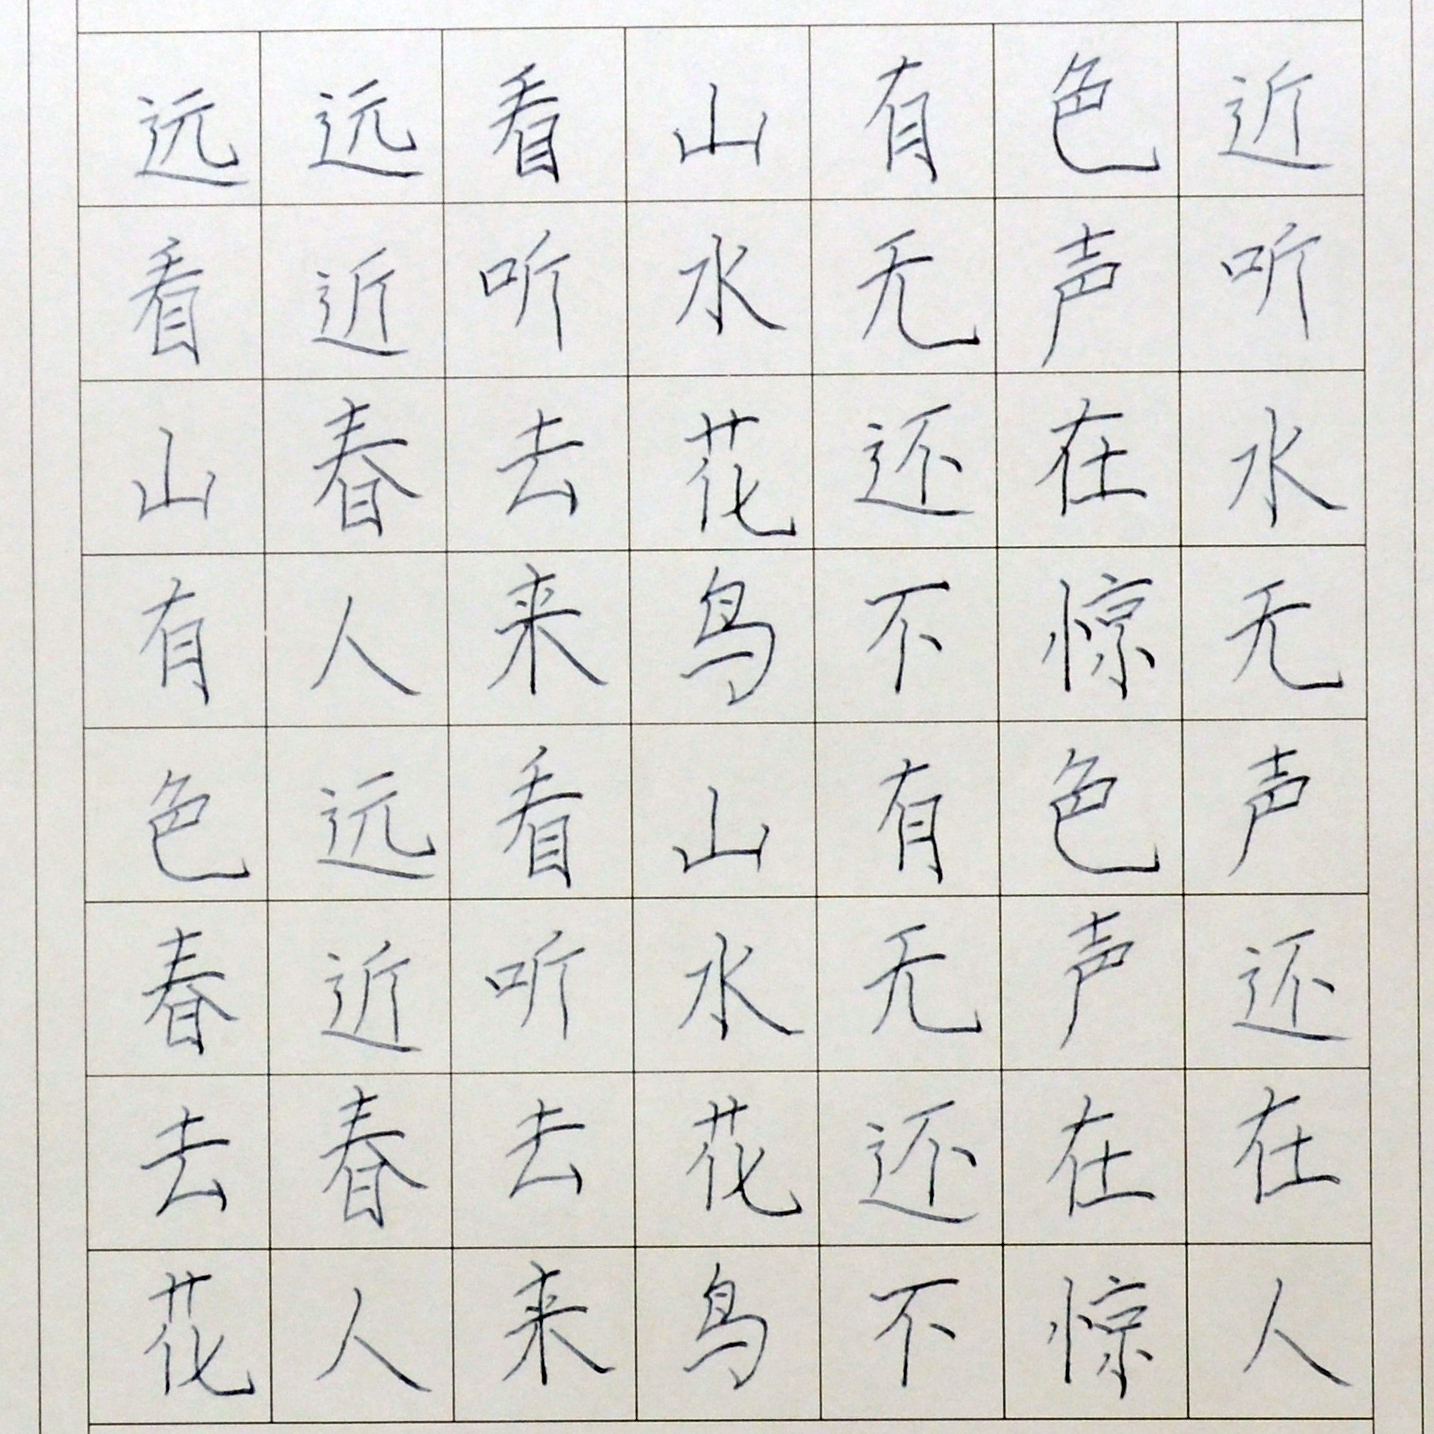 远远看山有色近
看近听水无声听
山春去花还在水
有人来鸟不惊无
色远看山有色声
春近听水无声还
去春去花还在在
花人来鸟不惊人